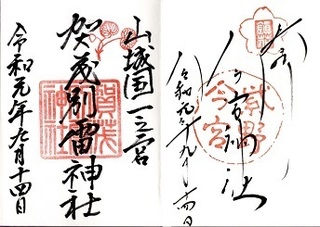 山城国一之宮
賀茂別雷神社
令和元年九月十四日
賀茂
神社
紫野
今宮
今宮神社
令和元年九月十四日